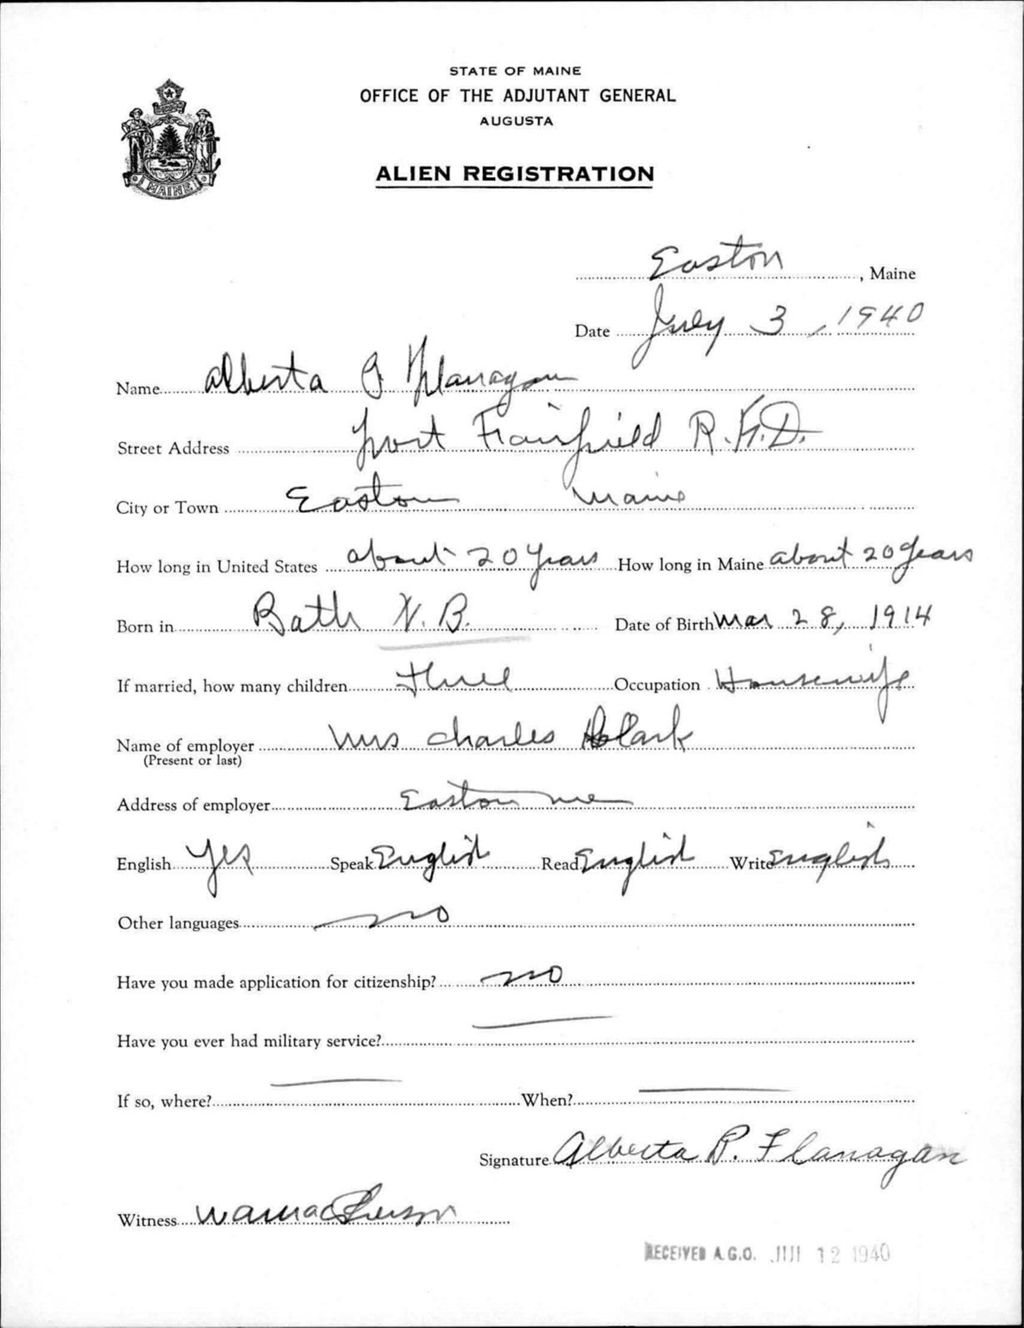 STATE OF MAINE
OFFICE OF THE ADJUTANT GENERAL
AUGUSTA
ALIEN REGISTRATION
MAINE
Easton, Maine
Date July 3, 1940
Name Alberta P Flanagan
Street Address Fort Fairfield R.F.D.
City or Town Easton Maine
How long in United States about 20 years How long in Maine about 20 years
Born in Bath N.B. Date of Birth Mar 28, 1914
If married, how many children three Occupation Housewife
Name of employer Mrs Charles Clark
(Present or last)
Address of employer Easton Me
English Yes Speak English Read English Write English
Other languages no
Have you made application for citizenship? no
Have you ever had military service? —
If so, where? — When? —
Signature Alberta P. Flanagan
Witness
RECEIVED A.G.O. JUL 12 1940